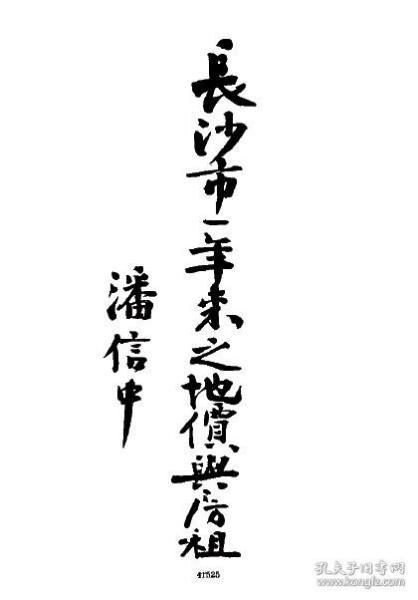 長沙市一年来之地價與房租
潘信中
41525
孔夫子旧书网